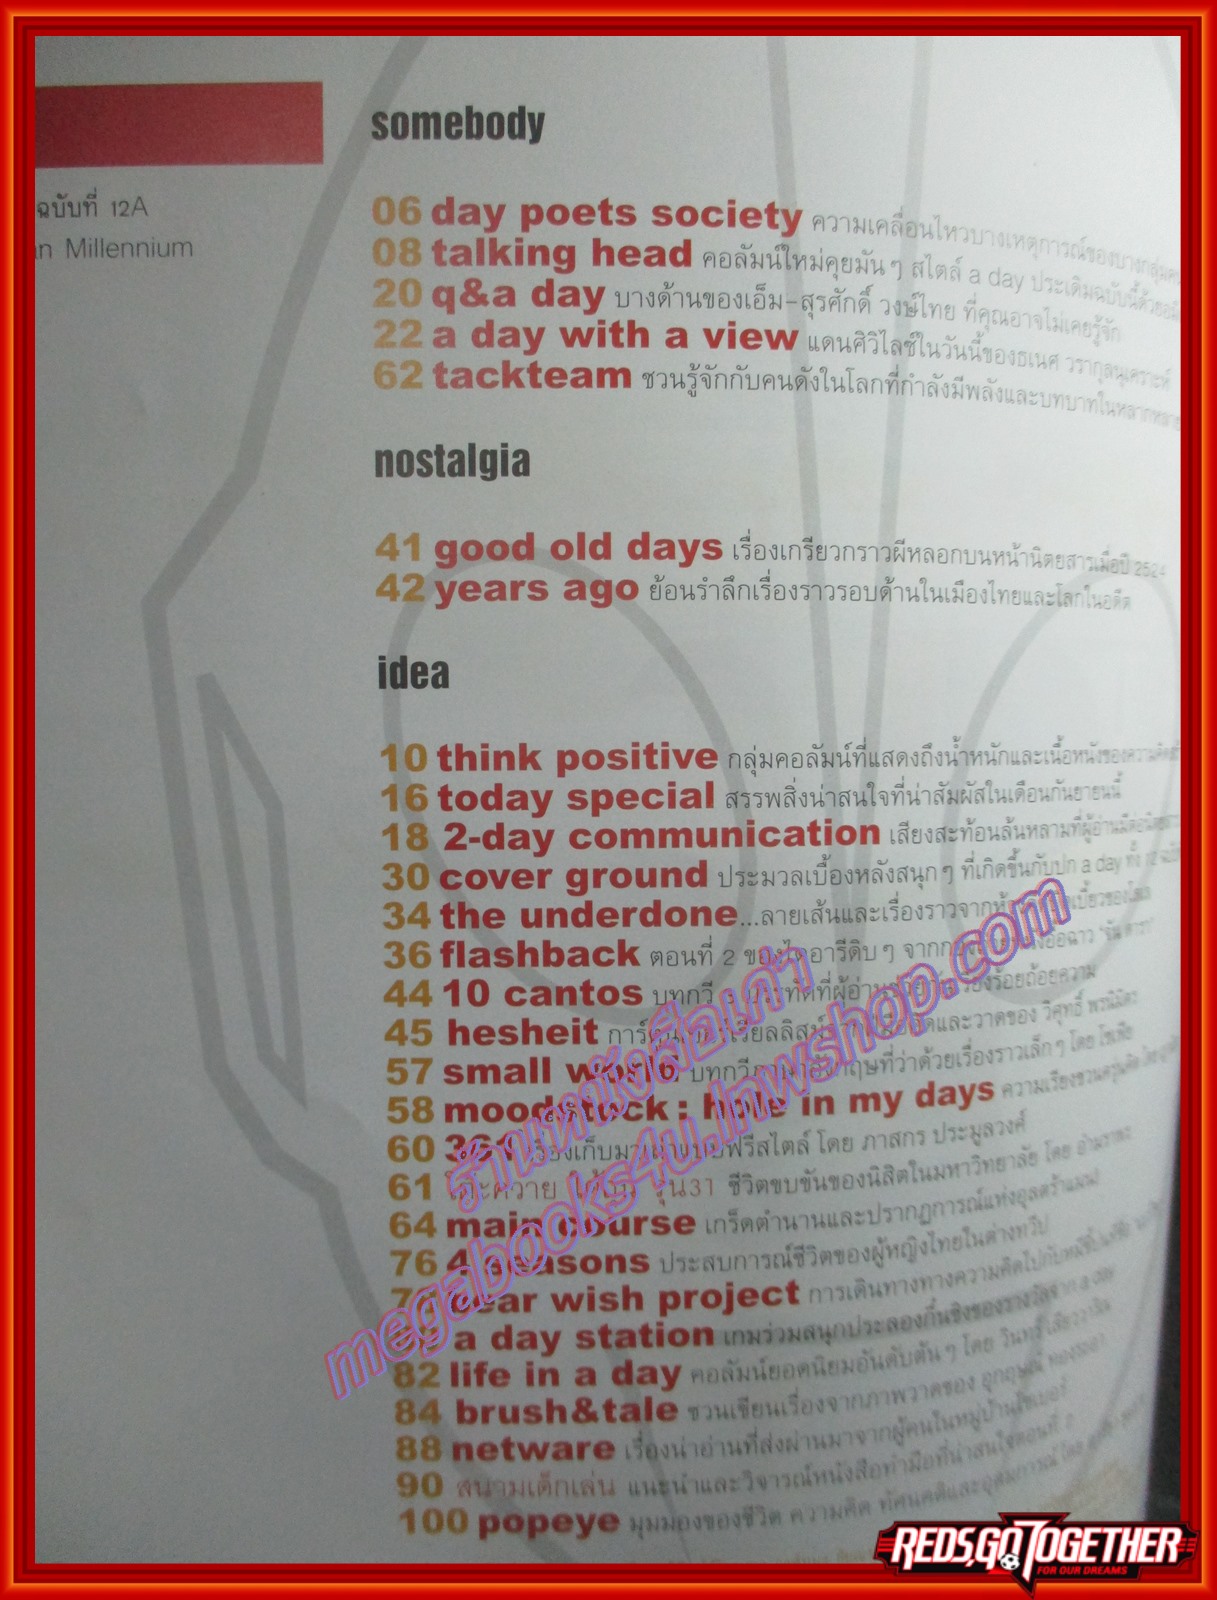 ฉบับที่ 12A
an Millennium
somebody
06 day poets society ความเคลื่อนไหวบางเหตุการณ์ของบางกลุ่มคน
08 talking head คอลัมน์ใหม่คุยมันๆ สไตล์ a day ประเดิมฉบับนี้ด้วย
20 q&a day บางด้านของเอ็ม-สุรศักดิ์ วงษ์ไทย ที่คุณอาจไม่เคยรู้จัก
22 a day with a view แดนศิวิไลซ์ในวันนี้ของธเนศ วรากุลนุเคราะห์
62 tackteam ชวนรู้จักกับคนดังในโลกที่กำลังมีพลังและบทบาทในหลากหลาย
nostalgia
41 good old days เรื่องเกรียวกราวผีหลอกบนหน้านิตยสารเมื่อปี 2524
42 years ago ย้อนรำลึกเรื่องราวรอบด้านในเมืองไทยและโลกในอดีต
idea
10 think positive กลุ่มคอลัมน์ที่แสดงถึงน้ำหนักและเนื้อหนังของความคิด
16 today special สรรพสิ่งน่าสนใจที่น่าสัมผัสในเดือนกันยายนนี้
18 2-day communication เสียงสะท้อนล้นหลามที่ผู้อ่านมีต่อ
30 cover ground ประมวลเบื้องหลังสนุกๆ ที่เกิดขึ้นกับปก a day ทั้ง 12
34 the underdone...ลายเส้นและเรื่องราวจาก
36 flashback ตอนที่ 2 ของไดอารี่ดิบๆ จาก "จัน ดารา"
44 10 cantos บทกวี ที่ผู้อ่าน ร้อยถ้อยความ
45 hesheit การ์ตูน และวาดของ วิศุทธิ์ พรนิมิตร
57 small world บทกวีภาษาอังกฤษที่ว่าด้วยเรื่องราวเล็กๆ โดย โซเฟีย
58 moodstuck : hole in my days ความเรียงชวนครุ่นคิด โดย
60 361 ฟรีสไตล์ โดย ภาสกร ประมูลวงศ์
61 โต๊ะควาย ใต้ถุน รุ่น31 ชีวิตขบขันของนิสิตในมหาวิทยาลัย โดย
64 main course เกร็ดตำนานและปรากฏการณ์แห่งอุลตร้าแมน
76 4 seasons ประสบการณ์ชีวิตของผู้หญิงไทยในต่างทวีป
dear wish project การเดินทางทางความคิดไปกับ
a day station เกมร่วมสนุกประลองกึ๋นชิงของรางวัลจาก a day
82 life in a day คอลัมน์ยอดนิยมอันดับต้นๆ โดย วินทร์ เลียววาริณ
84 brush&tale ชวนเขียนเรื่องจากภาพวาดของ
88 netware เรื่องน่าอ่านที่ส่งผ่านมาจากผู้คนในหมู่บ้านไซเบอร์
90 สนามเด็กเล่น แนะนำและวิจารณ์หนังสือทำมือที่น่าสนใจตอนที่ 2
100 popeye มุมมองของชีวิต ความคิด ทัศนคติและอุดมการณ์ โดย
ร้านหนังสือเก่า
megabooks4u.lnwshop.com
REDS,GO TOGETHER
FOR OUR DREAMS